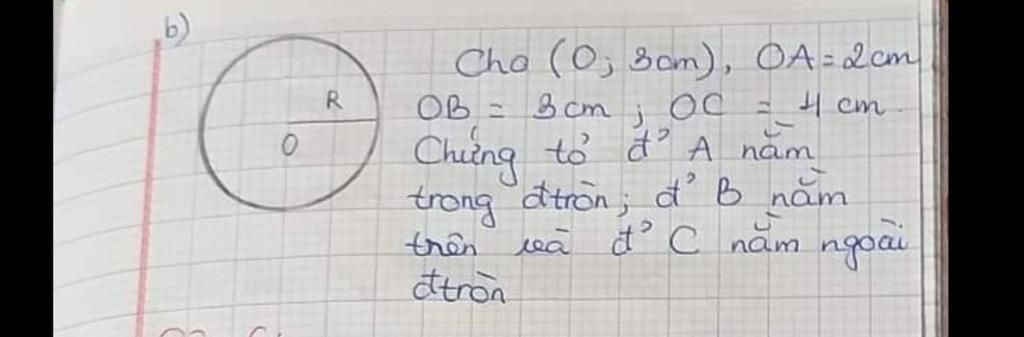 b)
Cho (O; 3cm), OA = 2cm
R
OB = 3cm ; OC = 4 cm.
O
Chứng tỏ đ' A nằm
trong đtròn; đ' B nằm
trên và đ' C nằm ngoài
đtròn